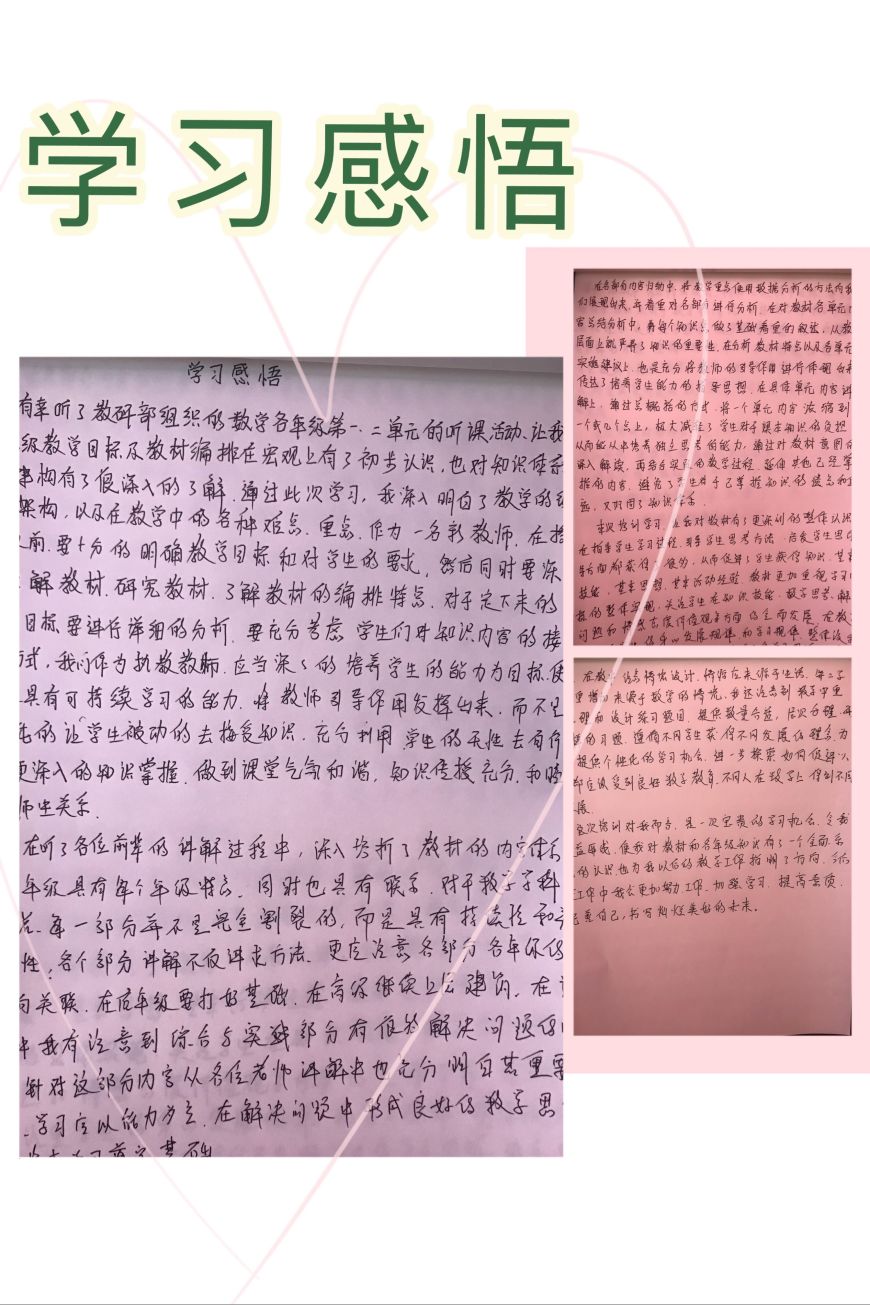 学习感悟
学习感悟
有幸听了教研部组织的数学各年级第一、二单元的听课活动、让我
级教学目标及教材编排在宏观上有了初步认识,也对知识体系
架构有了很深入的了解.通过此次学习,我深入明白了教学的
架构,以及在教学中的各种难点、重点.作为一名新教师,在
之前.要十分的明确教学目标和对学生的要求,然后同时要深
解教材.研究教材.了解教材的编排特点.对于定下来的
目标,要进行详细的分析.要充分考虑学生们对知识内容的接
方式,我们作为执教教师.应当深深的培养学生的能力为目标,使
具有可持续学习的能力.将教师引导作用发挥出来.而不是
的让学生被动的去接受知识.充分利用学生的天性去有
更深入的知识掌握.做到课堂气氛和谐,知识传授充分.和睦
师生关系.
在听了各位前辈的讲解过程中,深入分析了教材的内容体系
年级具有每个年级特点.同时也具有联系.对于数学学科
每一部分并不是完全割裂的,而是具有持续性和
性,各个部分讲解不仅讲求方法.更应注意各部分各年级的
向关联.在低年级要打好基础.在高年级继续上层建筑.在
中我有注意到综合与实践部分有很多解决问题的
针对这部分内容从各位老师讲解中也充分明白其重要
学习应以能力为主.在解决问题中形成良好的数学思
基础
在各部分内容归纳中.将教学重点使用数据分析的方法向我
们展现出来.并着重对各部分进行分析.在对教材各单元
容总结分析中,将每个知识点做了基础着重的叙述,从教
层面上就严肃了知识的重要性.在分析教材特点以及各单元
实施建议上.也是充分将教师的引导作用进行体现出来
传达了培养学生能力的指导思想.在具体单元内容讲
解上,通过总概括的方式.将一个单元内容浓缩到
一个或几个点上,极大减轻了学生对于课本知识的负担
从而能从中培养独立思考的能力,通过对教材意图的
深入解读,再结合现有的教学过程.延伸其他已经掌
握的内容.避免了学生对于已掌握知识的盲点和
忘,又巩固了知识体系.
本次培训学习,让我对教材有了更深刻的整体认识
在指导学生学习过程.引导学生思考方法.启发学生思
等方面都获得了很多,从而促进了学生获得知识.基本
技能.基本思想.基本活动经验.教材更加重视学习
标的整体实现,关注学生在知识技能.数学思考.解
问题和情感态度价值观等方面的全面发展.在教
发展规律和学习规律.整体设
在教学情境设计.情境应来源于生活.每二学
重增加来源于数学的情境,我还注意到教学中重
视和设计练习题目.提供数量合适,层次分明
的习题.遵循不同学生获得不同发展的理念,为
提供个性化的学习机会.进一步探索如何促进
都应该受到良好数学教育.不同人在数学上得到不同
展.
这次培训对我而言.是一次宝贵的学习机会.令我
益匪浅.使我对教材和各年级知识有了一个全面系
的认识也为我以后的教学工作指明了方向.今后
工作中我会更加努力工作.加强学习.提高素质.
完善自己,书写灿烂美好的未来。